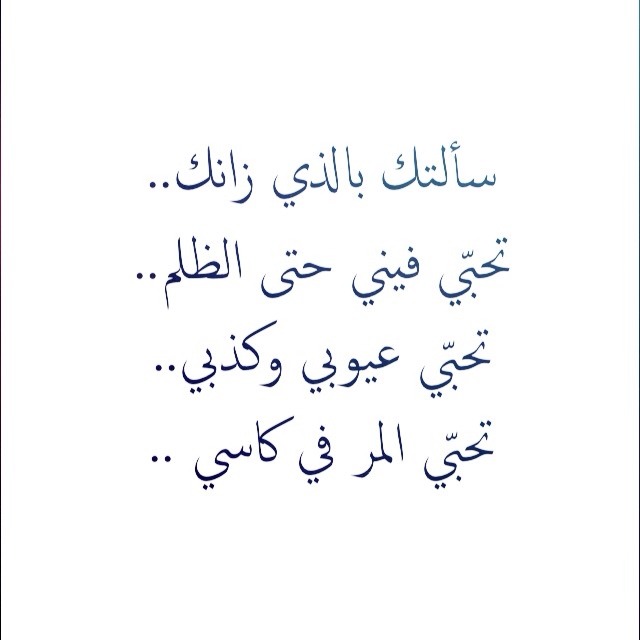 سألتك بالذي زانك..
تحبّي فيني حتى الظلم..
تحبّي عيوبي وكذبي..
تحبّي المر في كاسي ..